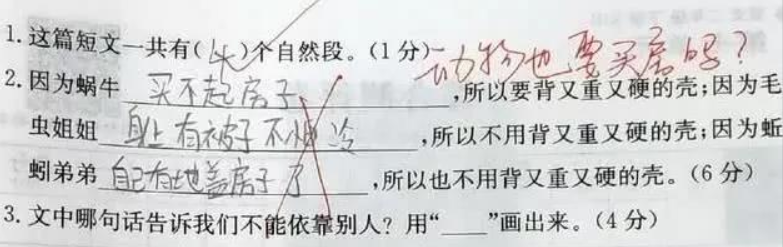 1.这篇短文一共有( 4 )个自然段。(1分)
动物也要买房吗?
2.因为蜗牛 买不起房子 ,所以要背又重又硬的壳;因为毛
虫姐姐 身上有被子不怕冷 ,所以不用背又重又硬的壳;因为蚯
蚓弟弟 自己有地盖房子了 ,所以也不用背又重又硬的壳。(6分)
3.文中哪句话告诉我们不能依靠别人?用“____”画出来。(4分)